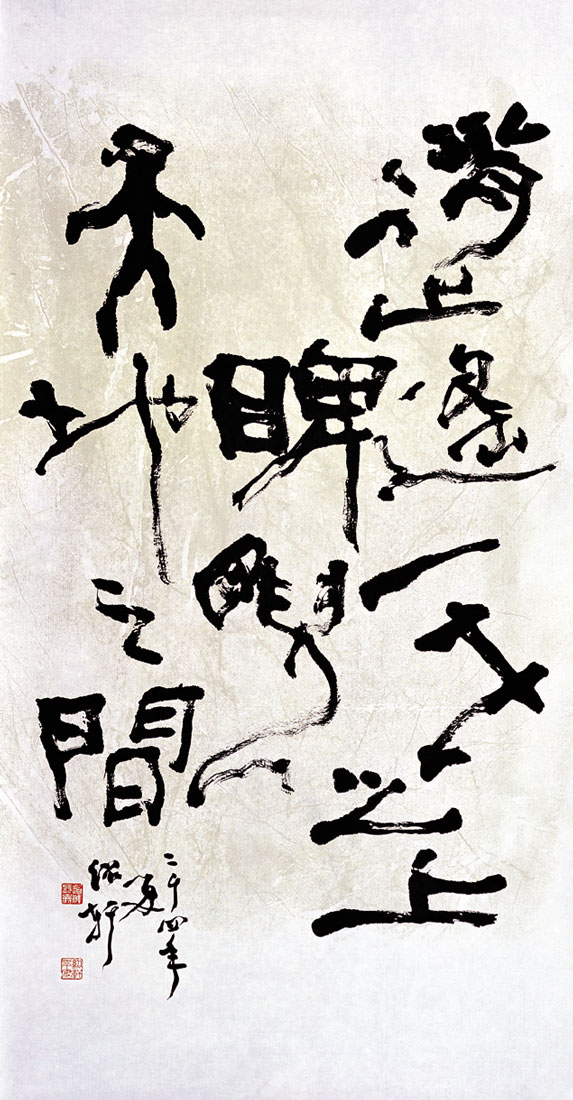 逍遙一世之上
睥睨
天地之間
二千四年
夏
紹軒